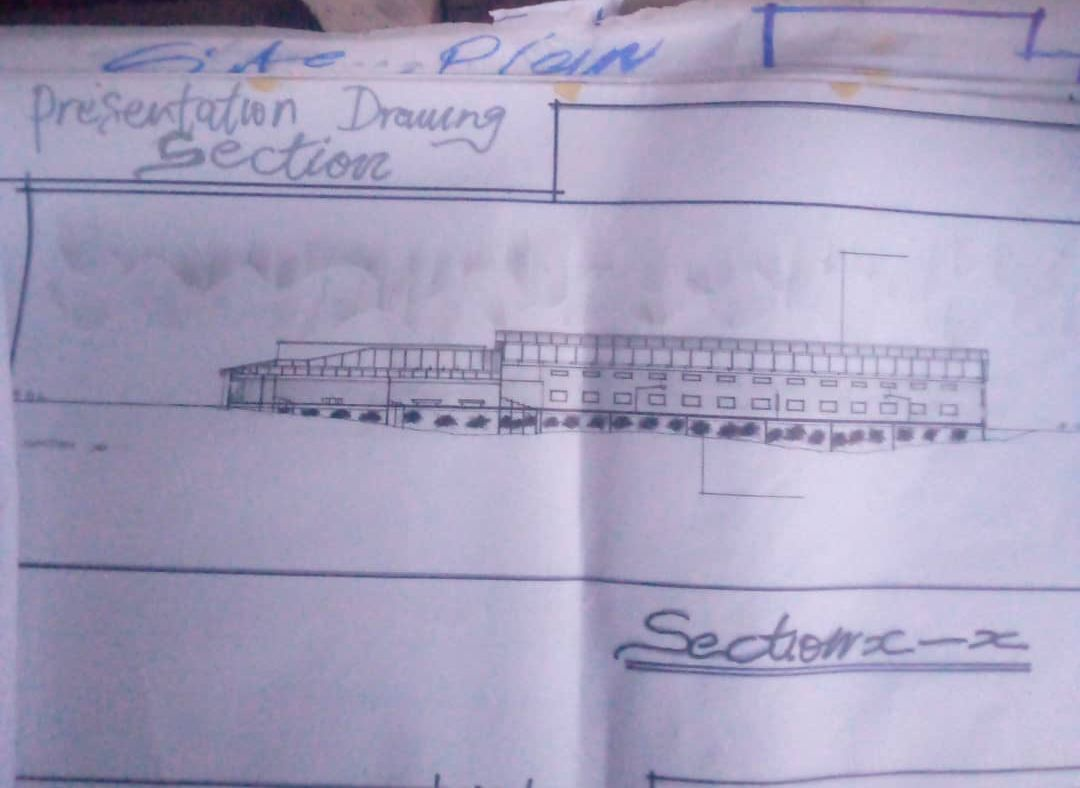 Site... Plain
Presentation Drawing
Section
Section x-x